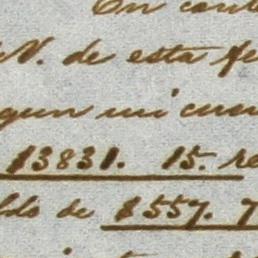 En cont
V. de esta fe
gun mi cuen
$3831. 15. re
ldo de $557. 7